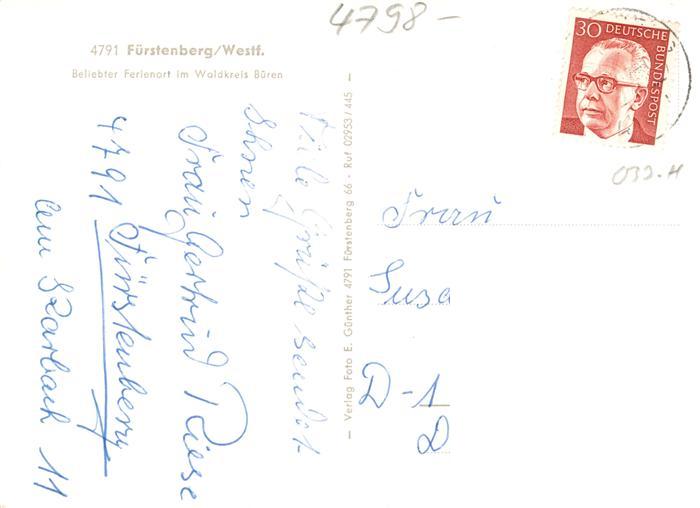 4798-
4791 Fürstenberg/Westf.
Beliebter Ferienort im Waldkreis Büren
30 DEUTSCHE BUNDESPOST
032-H
Viele Grüße sendet
Ihnen
Frau Gertrud Riese
4791 Fürstenberg
Am Karbach 11
— Verlag Foto E. Günther 4791 Fürstenberg 66 - Ruf 02953/445 —
Frau
Susa
D-1
D